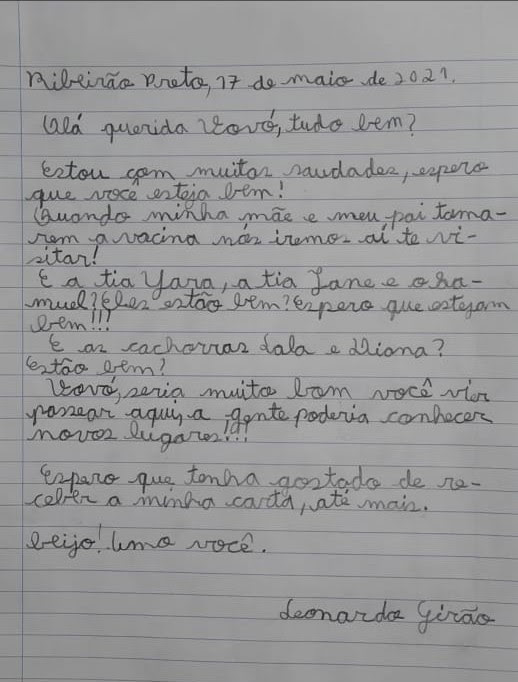 Ribeirão Preto, 17 de maio de 2021.
Olá querida Vovó, tudo bem?
Estou com muitas saudades, espero
que você esteja bem!
Quando minha mãe e meu pai toma-
rem a vacina nós iremos aí te vi-
sitar!
E a tia Yara, a tia Jane e o Sa-
muel? Eles estão bem? Espero que estejam
bem!!!
E as cachorras Lala e Diana?
Estão bem?
Vovó, seria muito bom você vir
passear aqui, a gente poderia conhecer
novos lugares!!!
Espero que tenha gostado de re-
ceber a minha carta, até mais.
beijo! Amo você.
Leonardo Girão